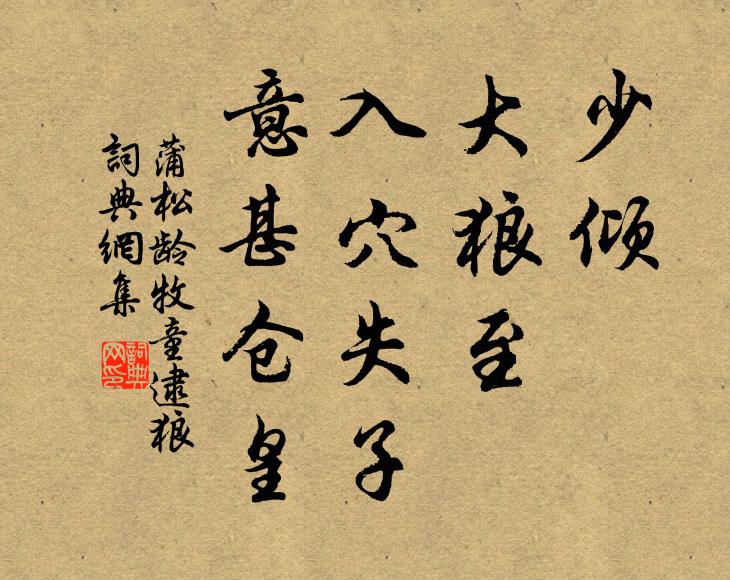 少倾
大狼至
入穴失子
意甚仓皇
蒲松龄牧童逮狼
詞典網集
詞典网印